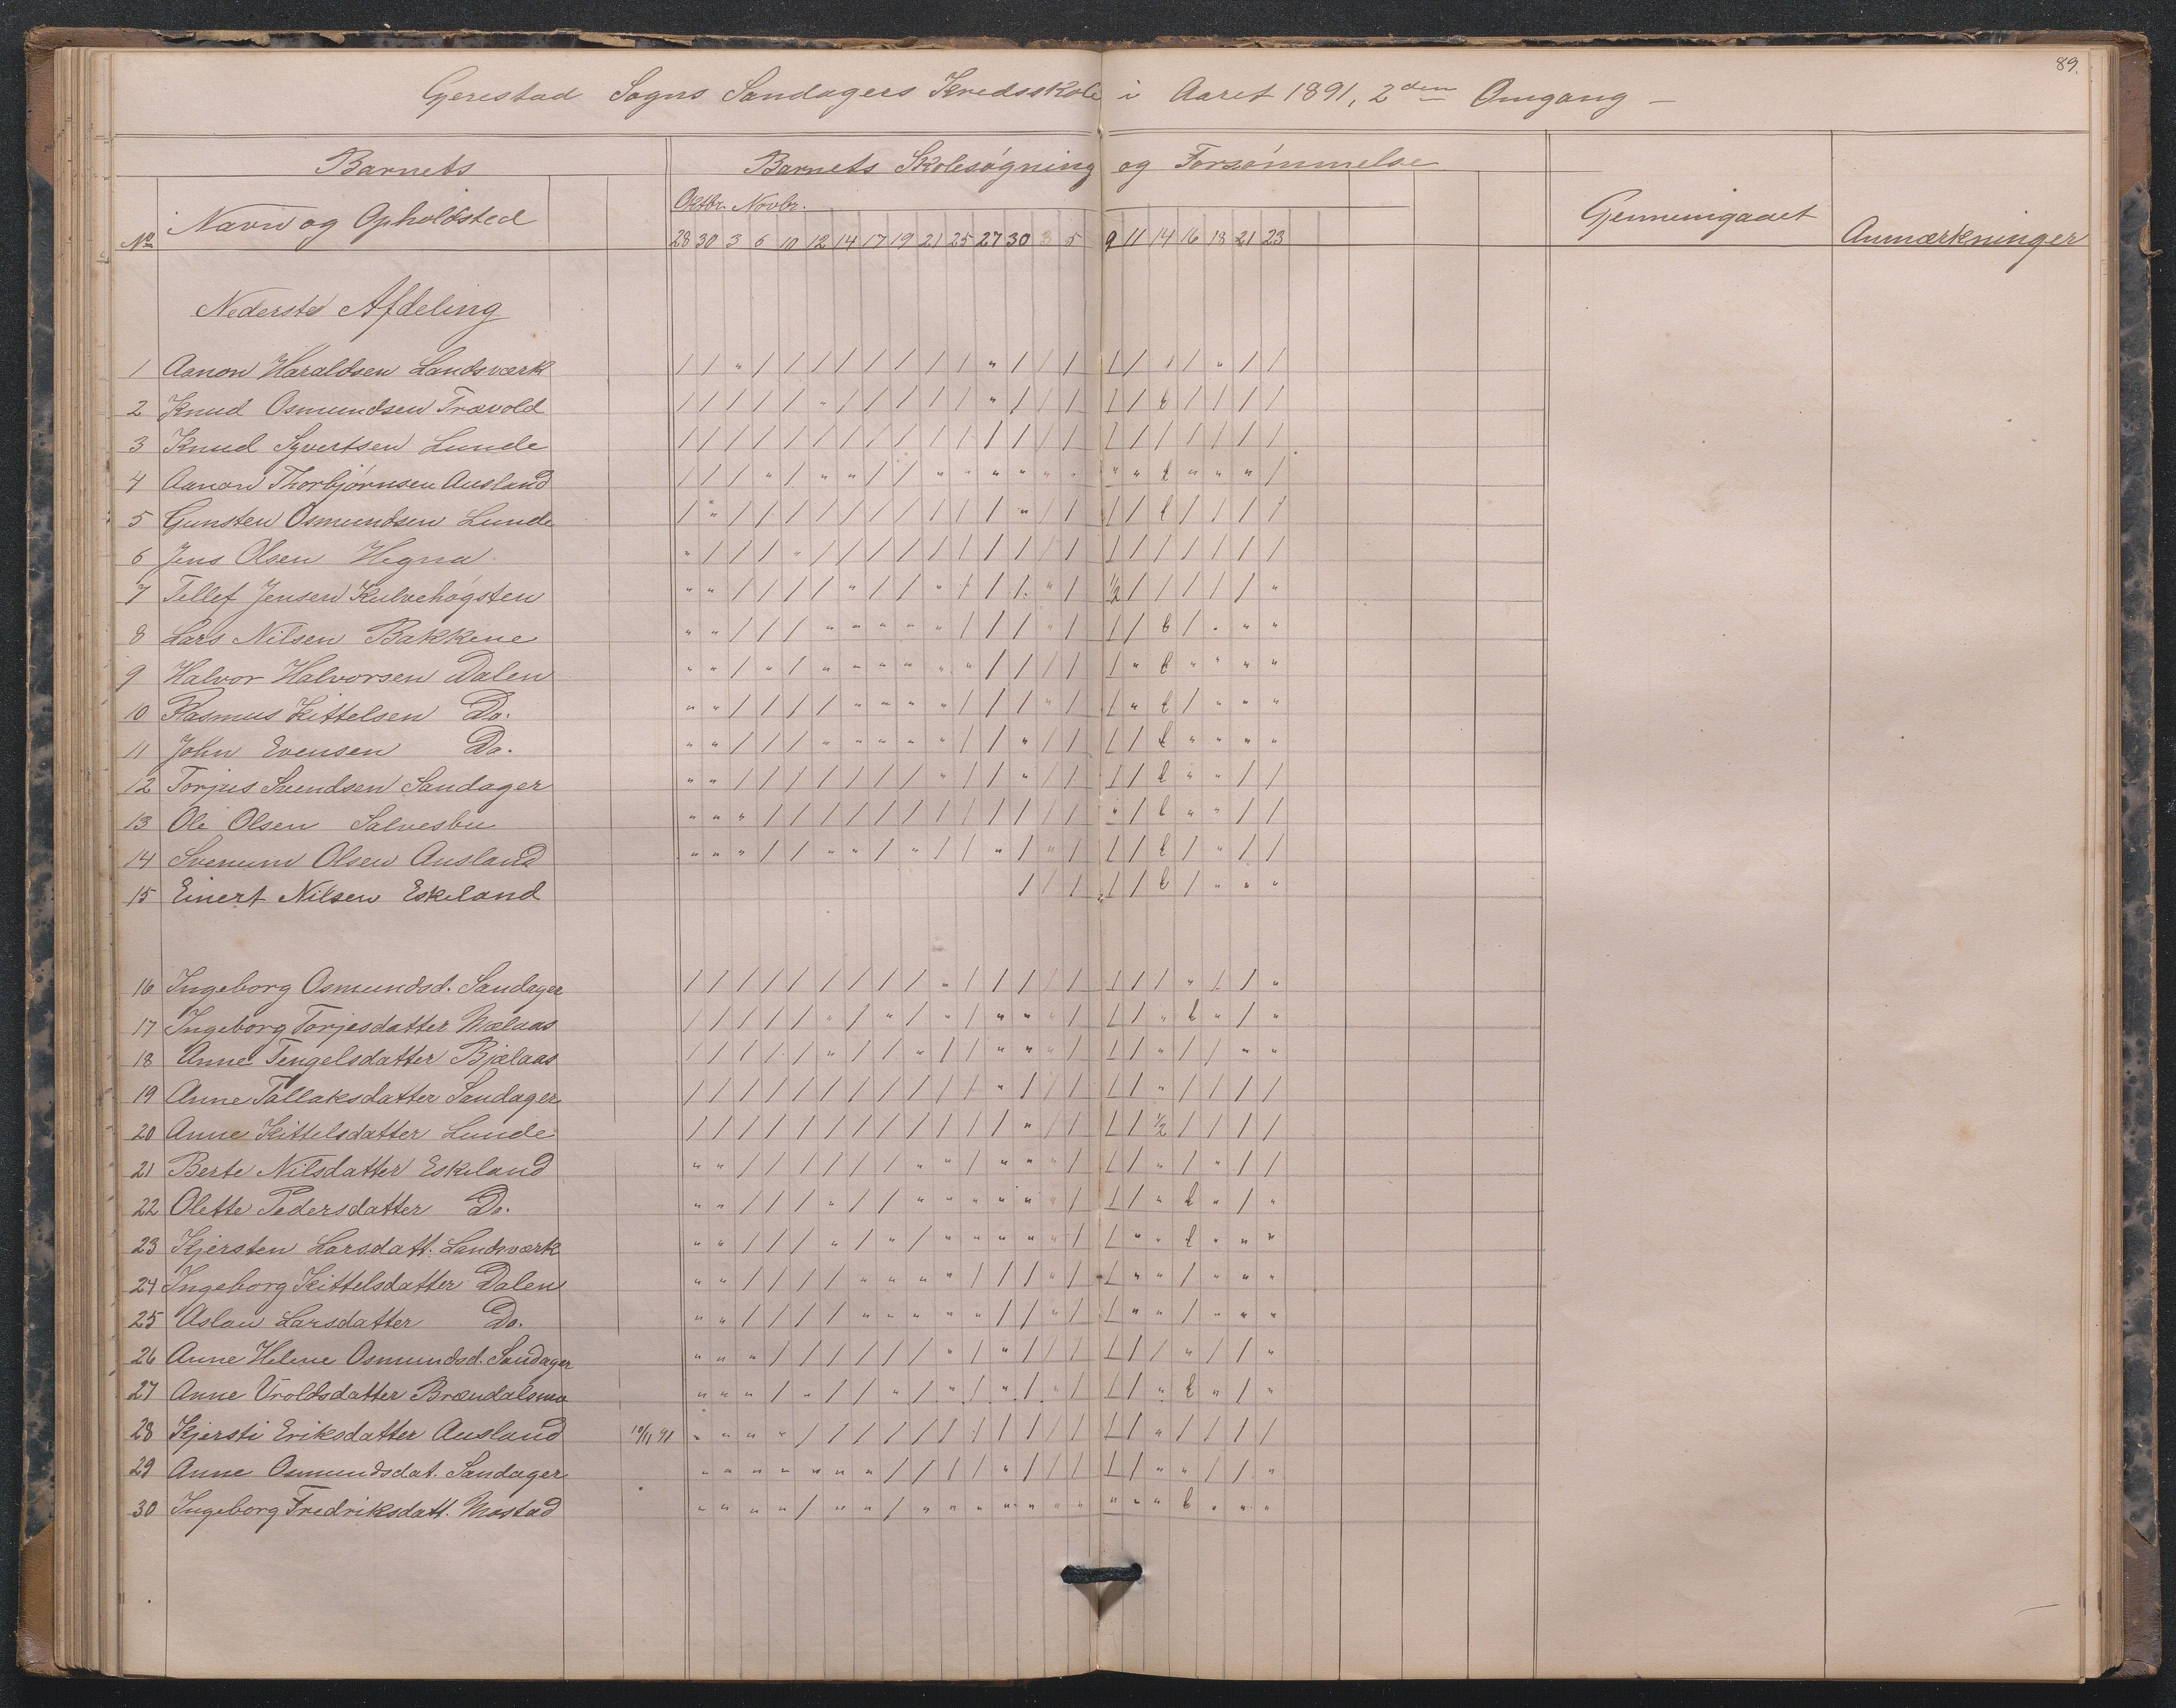 89.
Gjerestad Sogns Sandagers Kredsskole i Aaret 1891, 2den Omgang –
Barnets
Barnets Skolesøgning og Forsømmelse
No Navn og Opholdsted
Oktbr. Novbr.
Gjennemgaaet
Anmærkninger
28 30 3 6 10 12 14 17 19 21 25 27 30 3 5 9 11 14 16 18 21 23
Nederste Afdeling
1 Aanon Haraldsen Landsværk / / " / / / / / / / / " / / / / / / / " / /
2 Knud Osmundsen Trævold / / / / / " / / / / / " / / / / / b / / / /
3 Knud Syvertsen Lunde / / / / / / / / / / / / / / / / / / / / / /
4 Aanon Thorbjørnsen Ausland / / / " / " " / / " " " " " " " " b " " " /
5 Gunsten Osmundsen Lunde / " / / / / / / / / / / " / / / / b / / / /
6 Jens Olsen Hegna " / / / " / / / / / / / / / / / / / / / / /
7 Tellef Jensen Kulvehøgsten " " / / / / " / / " / / / " / 1/2 / / / / / "
8 Lars Nilsen Bakkene " " / / / " " " " " / / / " / / / b / " " "
9 Halvor Halvorsen Dalen " " / " / " " " " " " / / / / / " b " " " "
10 Rasmus Kittelsen Do. " " / / / / " " " " / / / " / / " b / " " "
11 John Evensen Do. " " / / / " " " " " / / " / / / / b " " " "
12 Torjus Svendsen Sandager " " / / / / / / / " / / " / / / / b " " / /
13 Ole Olsen Salvesbu " " " / / / / / / / / / / / / " / b " " / /
14 Svenum Olsen Ausland " " " / / " " / " / / " / " / / / b / " / /
15 Einert Nilsen Eskeland / / / / / b / " " "
16 Ingeborg Osmundsd. Sandager / / / / / / / / / " / / / / / / / / " / / "
17 Ingeborg Torjesdatter Mælaas / / / / / " / " / " / " " " / / / " b " / "
18 Anne Tengelsdatter Bjælaas / / / / / " / / " / / " " " / / / " / / " "
19 Anne Tallaksdatter Sandager / / / / / / / / / / / " / / / / / " / / / /
20 Anne Kittelsdatter Lunde / / / / / / / / / / / / " / / / / 1/2 / / / /
21 Berte Nilsdatter Eskeland " " / / / / / / " " / " " " / / / " / " / /
22 Olette Pedersdatter Do. " " / / / " / / " " " " " " / / / " b " / "
23 Kjersten Larsdatt. Landsværk " " / / / " / " / " " " " " / / " " b " " "
24 Ingeborg Kittelsdatter Dalen " " / / / / " " " " / / / " / / " " / " " "
25 Aslau Larsdatter Do. " " / / / / " " " " " / / " / / " " / " " "
26 Anne Helene Osmundsd. Sandager " " " / / / / / / " / " / / / / / / " / / "
27 Anne Vroldsdatter Brændalsmo " " " / " / / " / " / " / " / / / " b " / "
28 Kjersti Eriksdatter Ausland 10/11 91 " " " " / / / / / / / / / / / / / " / / / /
29 Anne Osmundsdat. Sandager " " " " " " " / / / / " / / / / / " " / / "
30 Ingeborg Fredriksdatt. Mostad " " " " / " " / " " " " " " " " " " b " " "